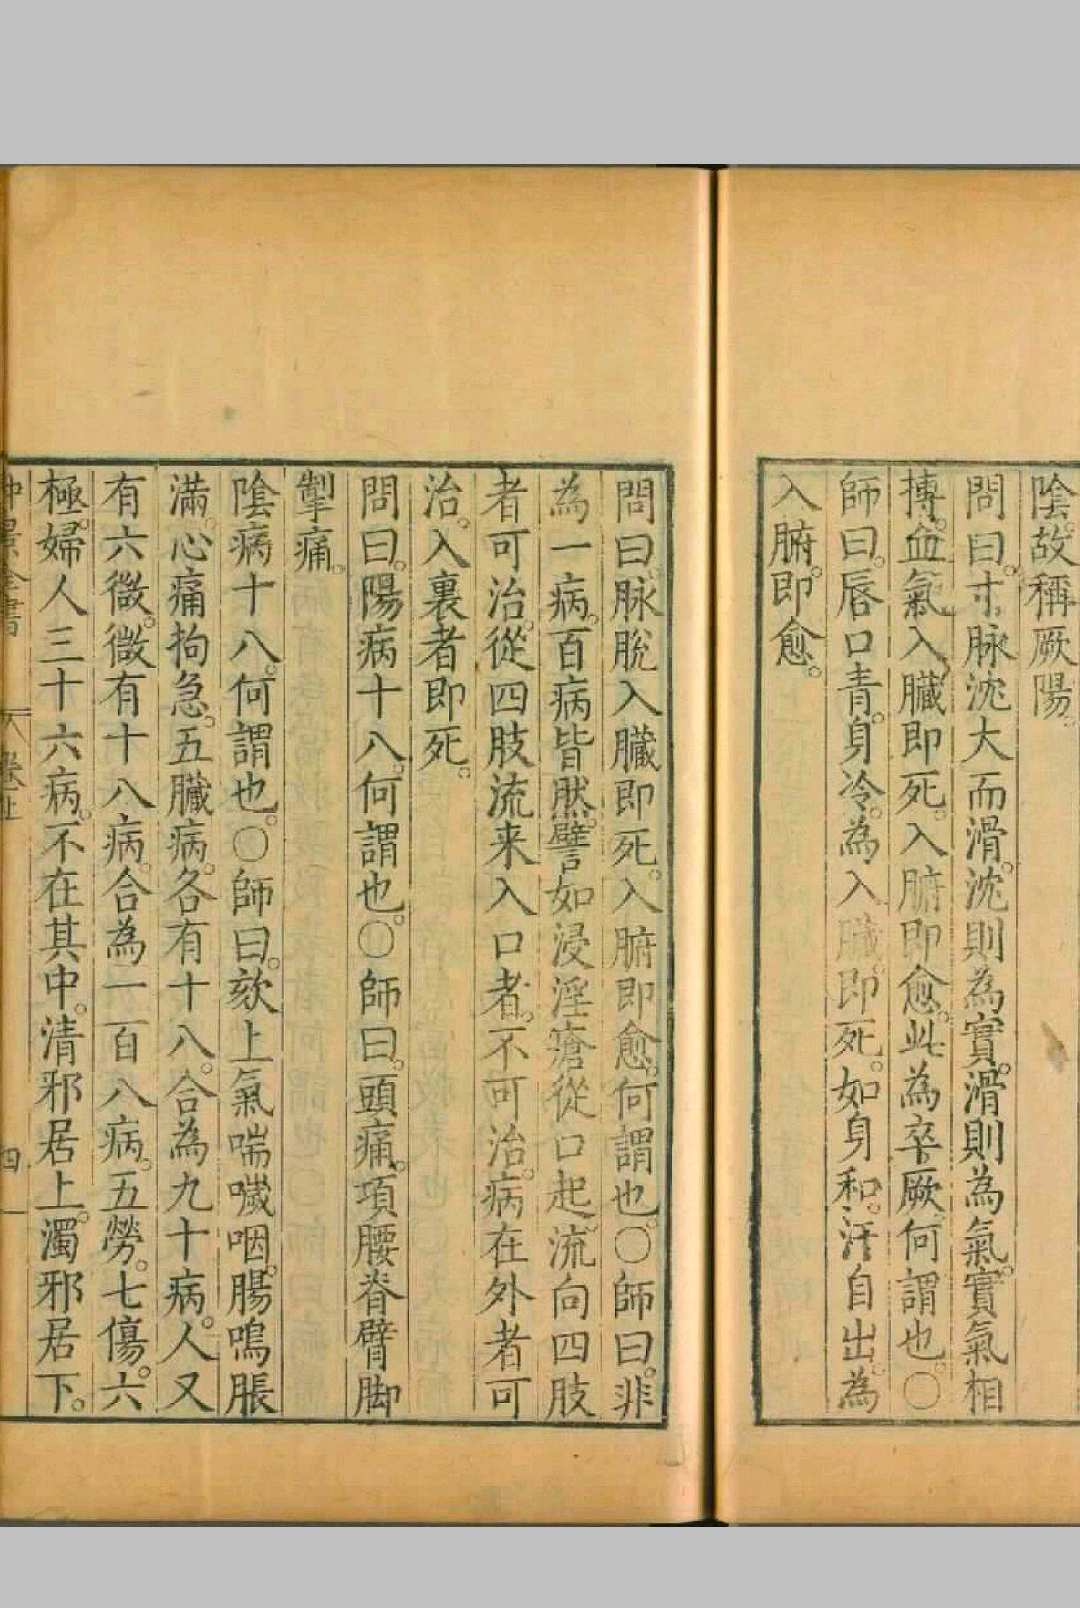 陰故稱厥陽。
問曰。寸脉沈大而滑。沈則為實。滑則為氣。實氣相
摶。血氣入臟即死。入腑即愈。此為卒厥。何謂也。〇
師曰。唇口青。身冷。為入臟。即死。如身和。汗自出。為
入腑。即愈。
問曰。脉脫入臟即死。入腑即愈。何謂也。〇師曰。非
為一病。百病皆然。譬如浸淫瘡從口起。流向四肢
者可治。從四肢流来入口者。不可治。病在外者可
治。入裏者即死。
問曰。陽病十八。何謂也。〇師曰。頭痛。項腰脊臂脚
掣痛。
陰病十八。何謂也。〇師曰。欬上氣喘噦咽。腸鳴脹
滿。心痛拘急。五臟病。各有十八。合為九十病。人又
有六微。微有十八病。合為一百八病。五勞。七傷。六
極。婦人三十六病。不在其中。清邪居上。濁邪居下。
仲景全書 卷上 四